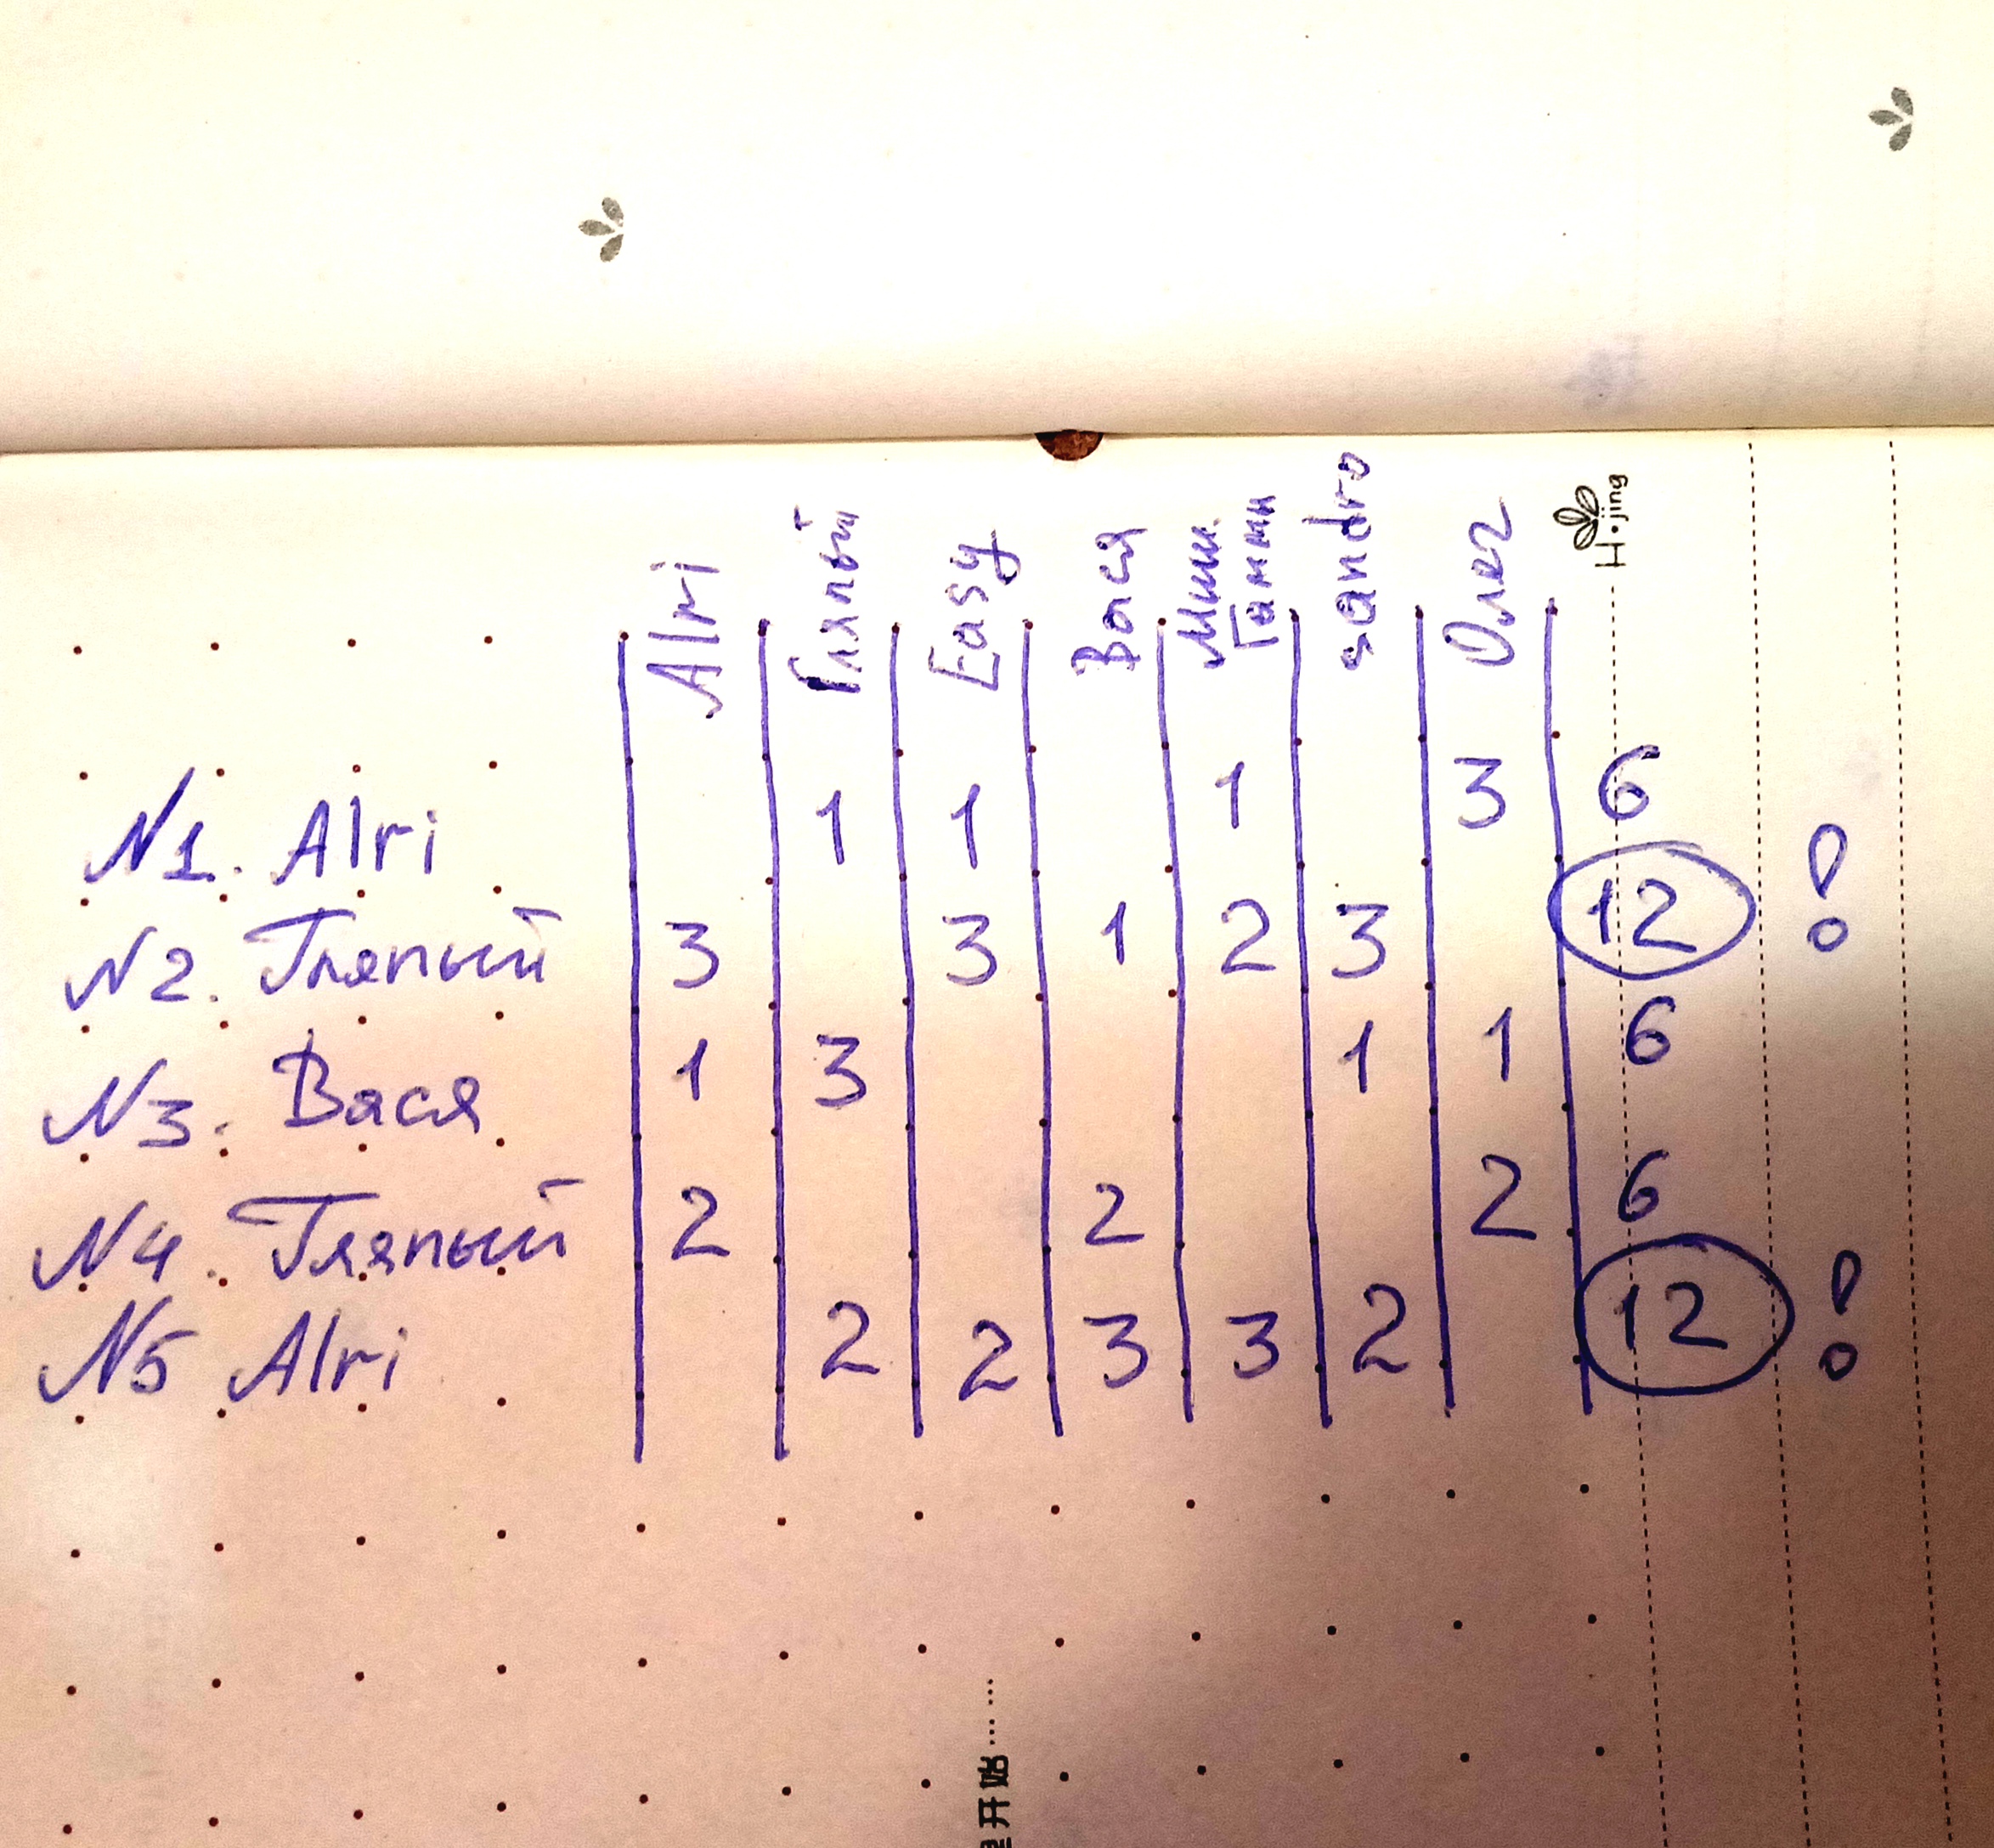 Alri Гляпый Easy Вася Миш. Гамми sandro Олег
H·jing
N1. Alri 1 1 1 3 6
N2. Гляпый 3 3 1 2 3 12 !
N3. Вася 1 3 1 1 6
N4. Гляпый 2 2 2 6
N5 Alri 2 2 3 3 2 12 !
开始……